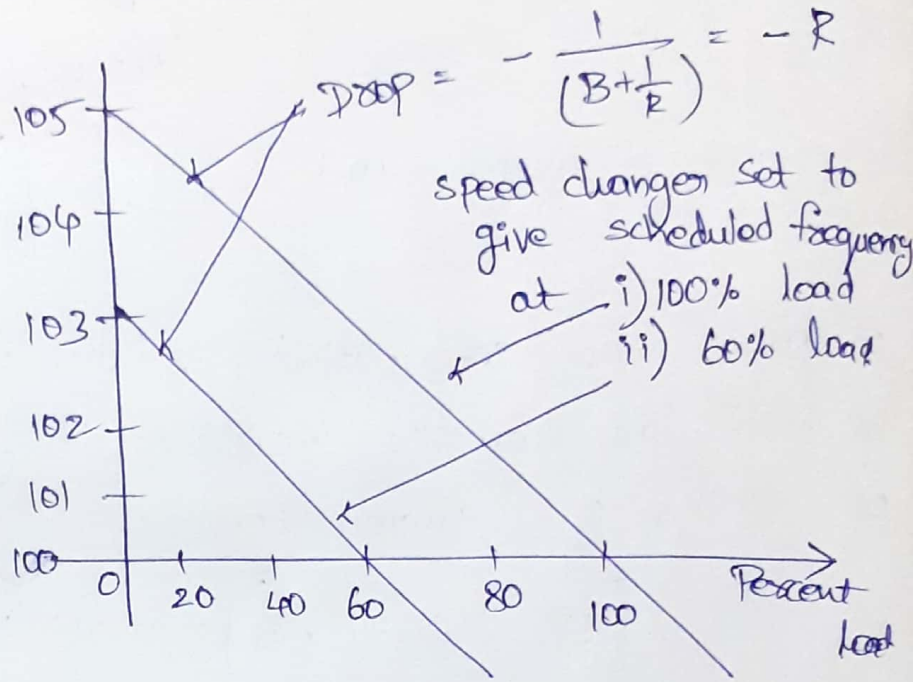 Droop = - 1/(B+1/R) = - R
speed changer set to
give scheduled frequency
at i) 100% load
ii) 60% load
105
104
103
102
101
100
0 20 40 60 80 100
Percent
load